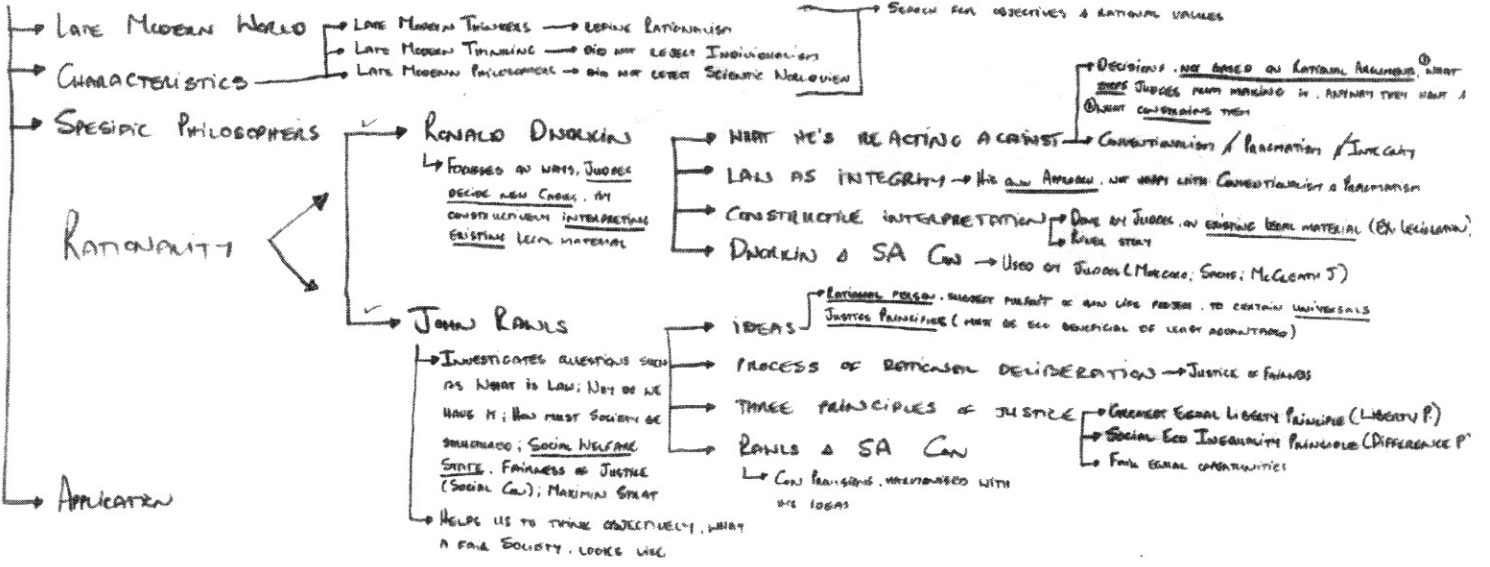 LATE MODERN WORLD
CHARACTERISTICS
LATE MODERN THINKERS → DEFINE RATIONALISM
LATE MODERN THINKING → DID NOT REJECT INDIVIDUALISM
LATE MODERN PHILOSOPHERS → DID NOT REJECT SCIENTIFIC WORLDVIEW
SEARCH FOR OBJECTIVES & RATIONAL VALUES
SPESIFIC PHILOSOPHERS
RATIONALITY
RONALD DWORKIN
FOCUSSES ON WAYS, JUDGES
DECIDE NEW CASES, BY
CONSTRUCTIVELY INTERPRETING
EXISTING LEGAL MATERIAL
WHAT HE'S REACTING AGAINST
DECISIONS, NOT BASED ON RATIONAL ARGUMENTS, ① WHAT
STOPS JUDGES FROM MAKING IT, ANYWAY THEY WANT &
② WHAT CONSTRAINS THEM
CONVENTIONALISM / PRAGMATISM / INTEGRITY
LAW AS INTEGRITY → HIS OWN APPROACH, NOT HAPPY WITH CONVENTIONALISM & PRAGMATISM
CONSTRUCTIVE INTERPRETATION
DONE BY JUDGES, ON EXISTING LEGAL MATERIAL (EX. LEGISLATION)
RIVER STORY
DWORKIN & SA CON → USED BY JUDGES (MOKGORO; SACHS; MCCREATH J)
JOHN RAWLS
INVESTIGATES QUESTIONS SUCH
AS WHAT IS LAW; WHY DO WE
HAVE IT; HOW MUST SOCIETY BE
STRUCTURED; SOCIAL WELFARE
STATE, FAIRNESS OF JUSTICE
(SOCIAL CON); MAXIMIN STRAT
HELPS US TO THINK OBJECTIVELY, WHAT
A FAIR SOCIETY, LOOKS LIKE
IDEAS
RATIONAL PERSON, SUBJECT PURSUIT OF OWN LIFE PROJECT, TO CERTAIN UNIVERSALS
JUSTICE PRINCIPLES (MUST BE ECO BENEFICIAL OF LEAST ADVANTAGED)
PROCESS OF RATIONAL DELIBERATION → JUSTICE OF FAIRNESS
THREE PRINCIPLES OF JUSTICE
GREATEST EQUAL LIBERTY PRINCIPLE (LIBERTY P.)
SOCIAL ECO INEQUALITY PRINCIPLE (DIFFERENCE P
FAIR EQUAL OPPORTUNITIES
RAWLS & SA CON
CON PROVISIONS, HARMONISED WITH
HIS IDEAS
APPLICATION